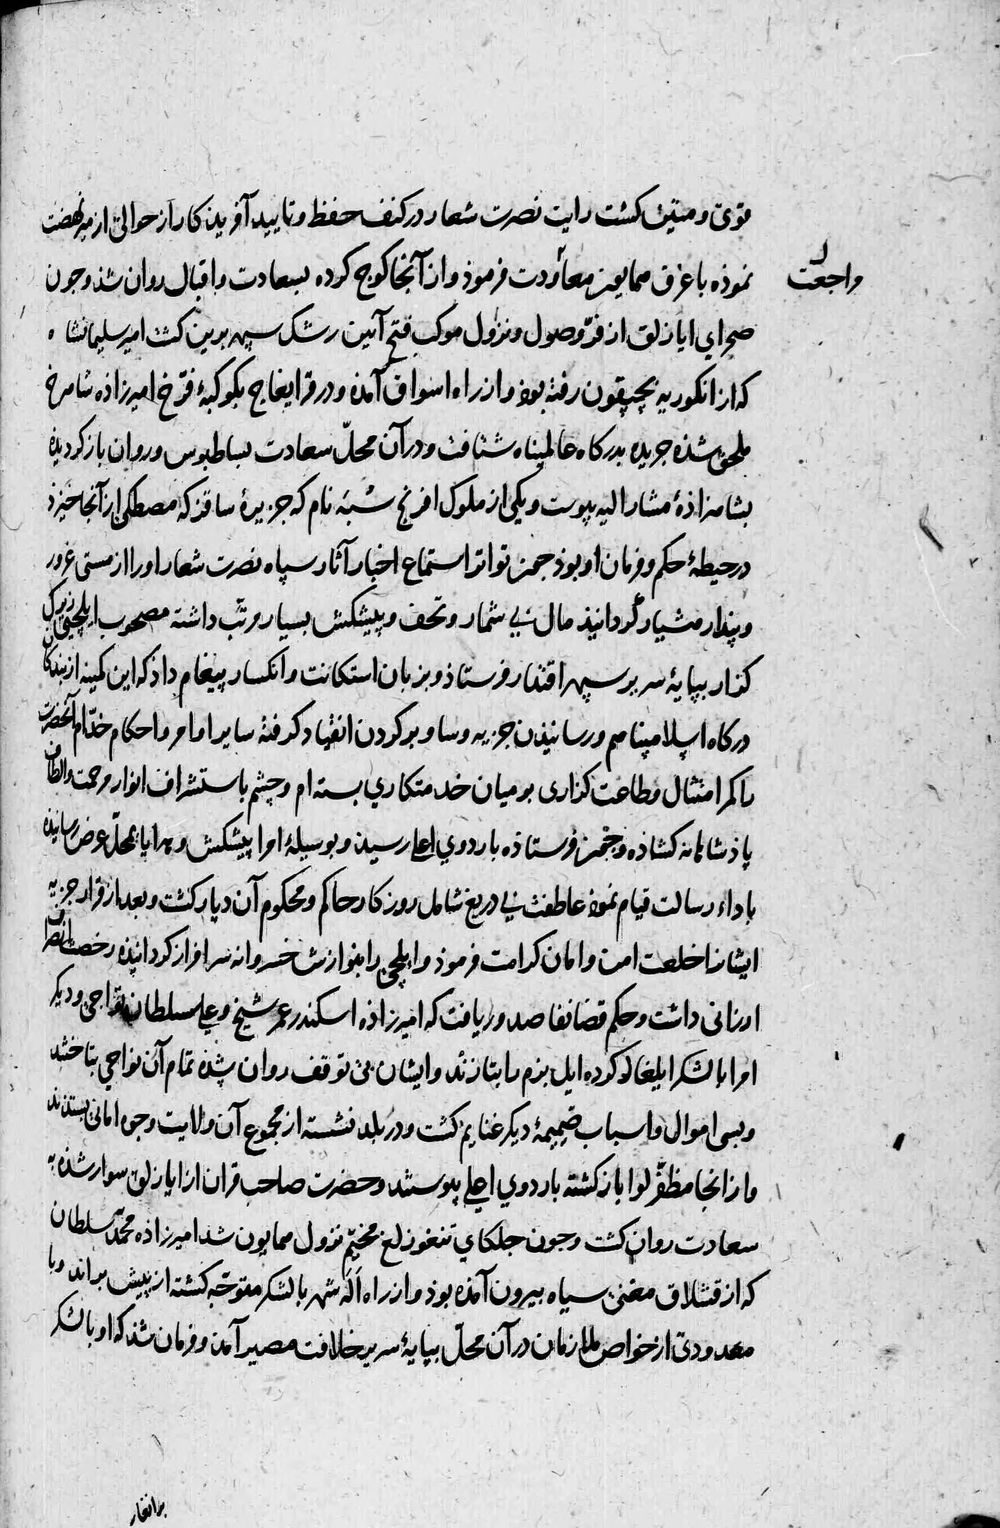 قوی و متین کشت رایت نصرت شعار در کنف حفظ و تایید آفریدن کار از حوالی ازمیر نهضت
نموذه با غرق همایون معاودت فرموذ و از آنجا کوچ کرده بسعادت و اقبال روان شذ و چون
مراجعت
صحرای ایازلق از فرّ وصول و نزول موکب فتح آیین رشک سپهر برین کشت امیر سلیمانشاه
که از انکوریه بچپقون رفته بوذ و از راه اسواق آمذه و در قرایغاج بکوکبهٔ فرّخ امیرزاذه شاهرخ
ملحق شذه جریده بدرکاه عالمپناه شتافت و در آن محلّ سعادت بساطبوس و روان باز کردیده
بشاهزاذهٔ مشارالیه پیوست و یکی از ملوک افرنج شبه نام که جزیرهٔ ساقز که مصطکی از آنجا خیزذ
در حیطهٔ حکم و فرمان او بوذ چون تواتر استماع اخبار آثار سپاه نصرت شعار او را از مستی غرور
و پندار هشیار گردانیذ مال بی شمار و تحف و پیشکش بسیار مرتّب داشته مصحوب ایلچیی زیرک
کذار بپایهٔ سریر سپهر اقتدار فرستاذ و بزبان استکانت و انکسار پیغام داذ که این کمینه از بندکان
درکاه اسلام پناهم و رسانیذن جزیه و ساو بر کردن انقیاد کرفته سایر اوامر و احکام خدّام آنحضرت
را کمر امتثال و طاعت کزاری بر میان خدمتکاری بسته ام و چشم باستشراف انوار مرحمت و الطاف
پاذشاهانه کشاذه و چون فرستاذه باردوی اعلی رسیذ و بوسیلهٔ امرا پیشکش و هدایا بمحلّ عرض رسانیده
باداء رسالت قیام نموذ عاطفت بی دریغ شامل روزکار حاکم و محکوم آن دیار کشت و بعد از قرار جزیه
ایشانرا خلعت امن و امان کرامت فرموذ و ایلچی را بنوازش خسروانه سرافراز کردانیذه رخصت انصراف
ارزانی داشت و حکم قضا نفاذ صدور یافت که امیرزاذه اسکندر عمر شیخ و علی سلطان تواجی و دیکر
امرا با لشکر ایلغار کرده ایل بزم را بتازند و ایشان بی توقف روان شذه تمام آن نواحی بتاختند
و بسی اموال و اسباب ضمیمهٔ دیکر غنایم کشت و در بلد نشسته از مجموع آن ولایت وجوه امانی بستدند
و از انجا مظفّر لوا باز کشته باردوی اعلی پیوستند و حضرت صاحب قران از ایازلق سوار شذه به
سعادت روان کشت و چون جلکای تنغوزلغ مخیّم نزول همایون شد امیرزاذه محمد سلطان
که از قشلاق مغنی سیاه بیرون آمذه بوذ و از راه اَلَه شهر با لشکر متوجّه کشته از پیش براند و با
معدودی از خواص ملازمان در آن محلّ بپایهٔ سریر خلافت مصیر آمذ و فرمان شذ که او با لشکر
برانغار